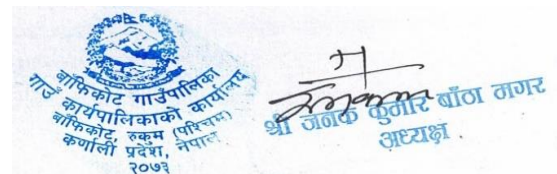 बाँफिकोट गाउँपालिका
गाउँ कार्यपालिकाको कार्यालय
बाँफिकोट, रुकुम (पश्चिम)
कर्णाली प्रदेश, नेपाल
२०७३
श्री जनक कुमार बाँठा मगर
अध्यक्ष